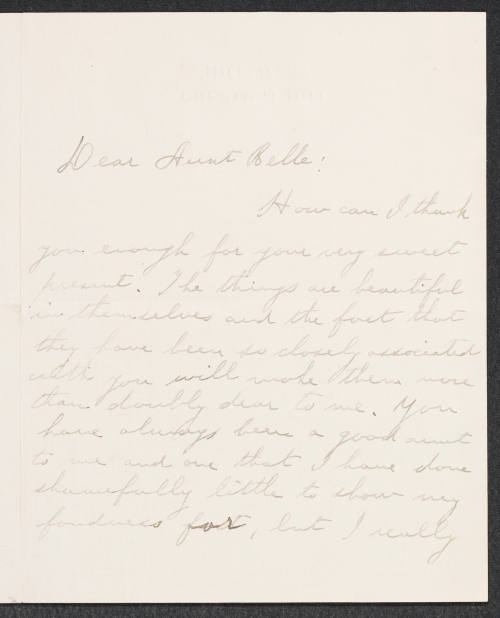 Dear Aunt Belle:
How can I thank
you enough for your very sweet
present. The things are beautiful
in themselves and the fact that
they have been so closely associated
with you will make them more
than doubly dear to me. You
have always been a good aunt
to me and one that I have done
shamefully little to show my
fondness for, but I really